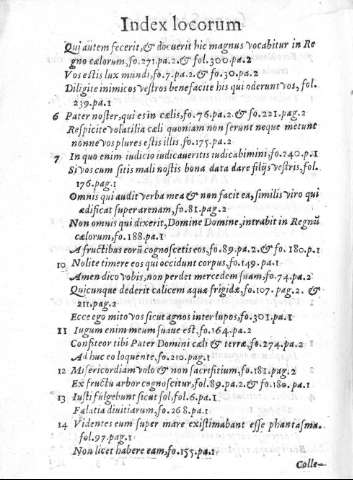 Index locorum
Qui autem fecerit, & docuerit hic magnus vocabitur in Re
gno cælorum, fo.271.pa.2.& fol.300.pa.2
Vos estis lux mundi, fo.7.pa.2.& fo.30.pa.2
Diligite inimicos vestros benefacite his qui oderunt vos, fol.
239.pa.1
6 Pater noster, qui es in cælis, fo.76.pa.2.& fo.221.pag.2
Respicite volatilia cæli quoniam non serunt neque metunt
nonne vos plures estis illis, fo.175.pa.2
7 In quo enim iudicio iudicaueritis iudicabimini, fo.240.p.1
Si vos cum sitis mali nostis bona data dare filijs vestris, fol.
176.pag.1
Omnis qui audit verba mea & non facit ea, similis viro qui
ædificat super arenam, fo.81.pag.2
Non omnis qui dixerit, Domine Domine, intrabit in Regnū
cælorum, fo.188.pa.1
A fructibus eorū cognoscetis eos, fo.89.pa.2.& fo.180.p.1
10 Nolite timere eos qui occidunt corpus, fo.149.pa.1
Amen dico vobis, non perdet mercedem suam, fo.74.pa.2
Quicunque dederit calicem aquæ frigidæ, fo.107.pag.2. &
211.pag.2
Ecce ego mito vos sicut agnos inter lupos, fo.301.pa.1
11 Iugum enim meum suaue est, fo.164.pa.2
Confiteor tibi Pater Domini cæli & terræ, fo.274.pa.2
Ad huc eo loquente, fo.210.pag.1
12 Misericordiam volo & non sacrifitium, fo.181.pag.2
Ex fructu arbor cognoscitur, fol.89.pa.2.& fo.180.pa.1
13 Iusti fulgebunt sicut sol, fol.6.pa.1
Falatia diuitiarum, fo.268.pa.1
14 Videntes eum super mare existimabant esse phantasma.
fol.97.pag.1
Non licet habere eam, fo.155.pa.1
Colle-